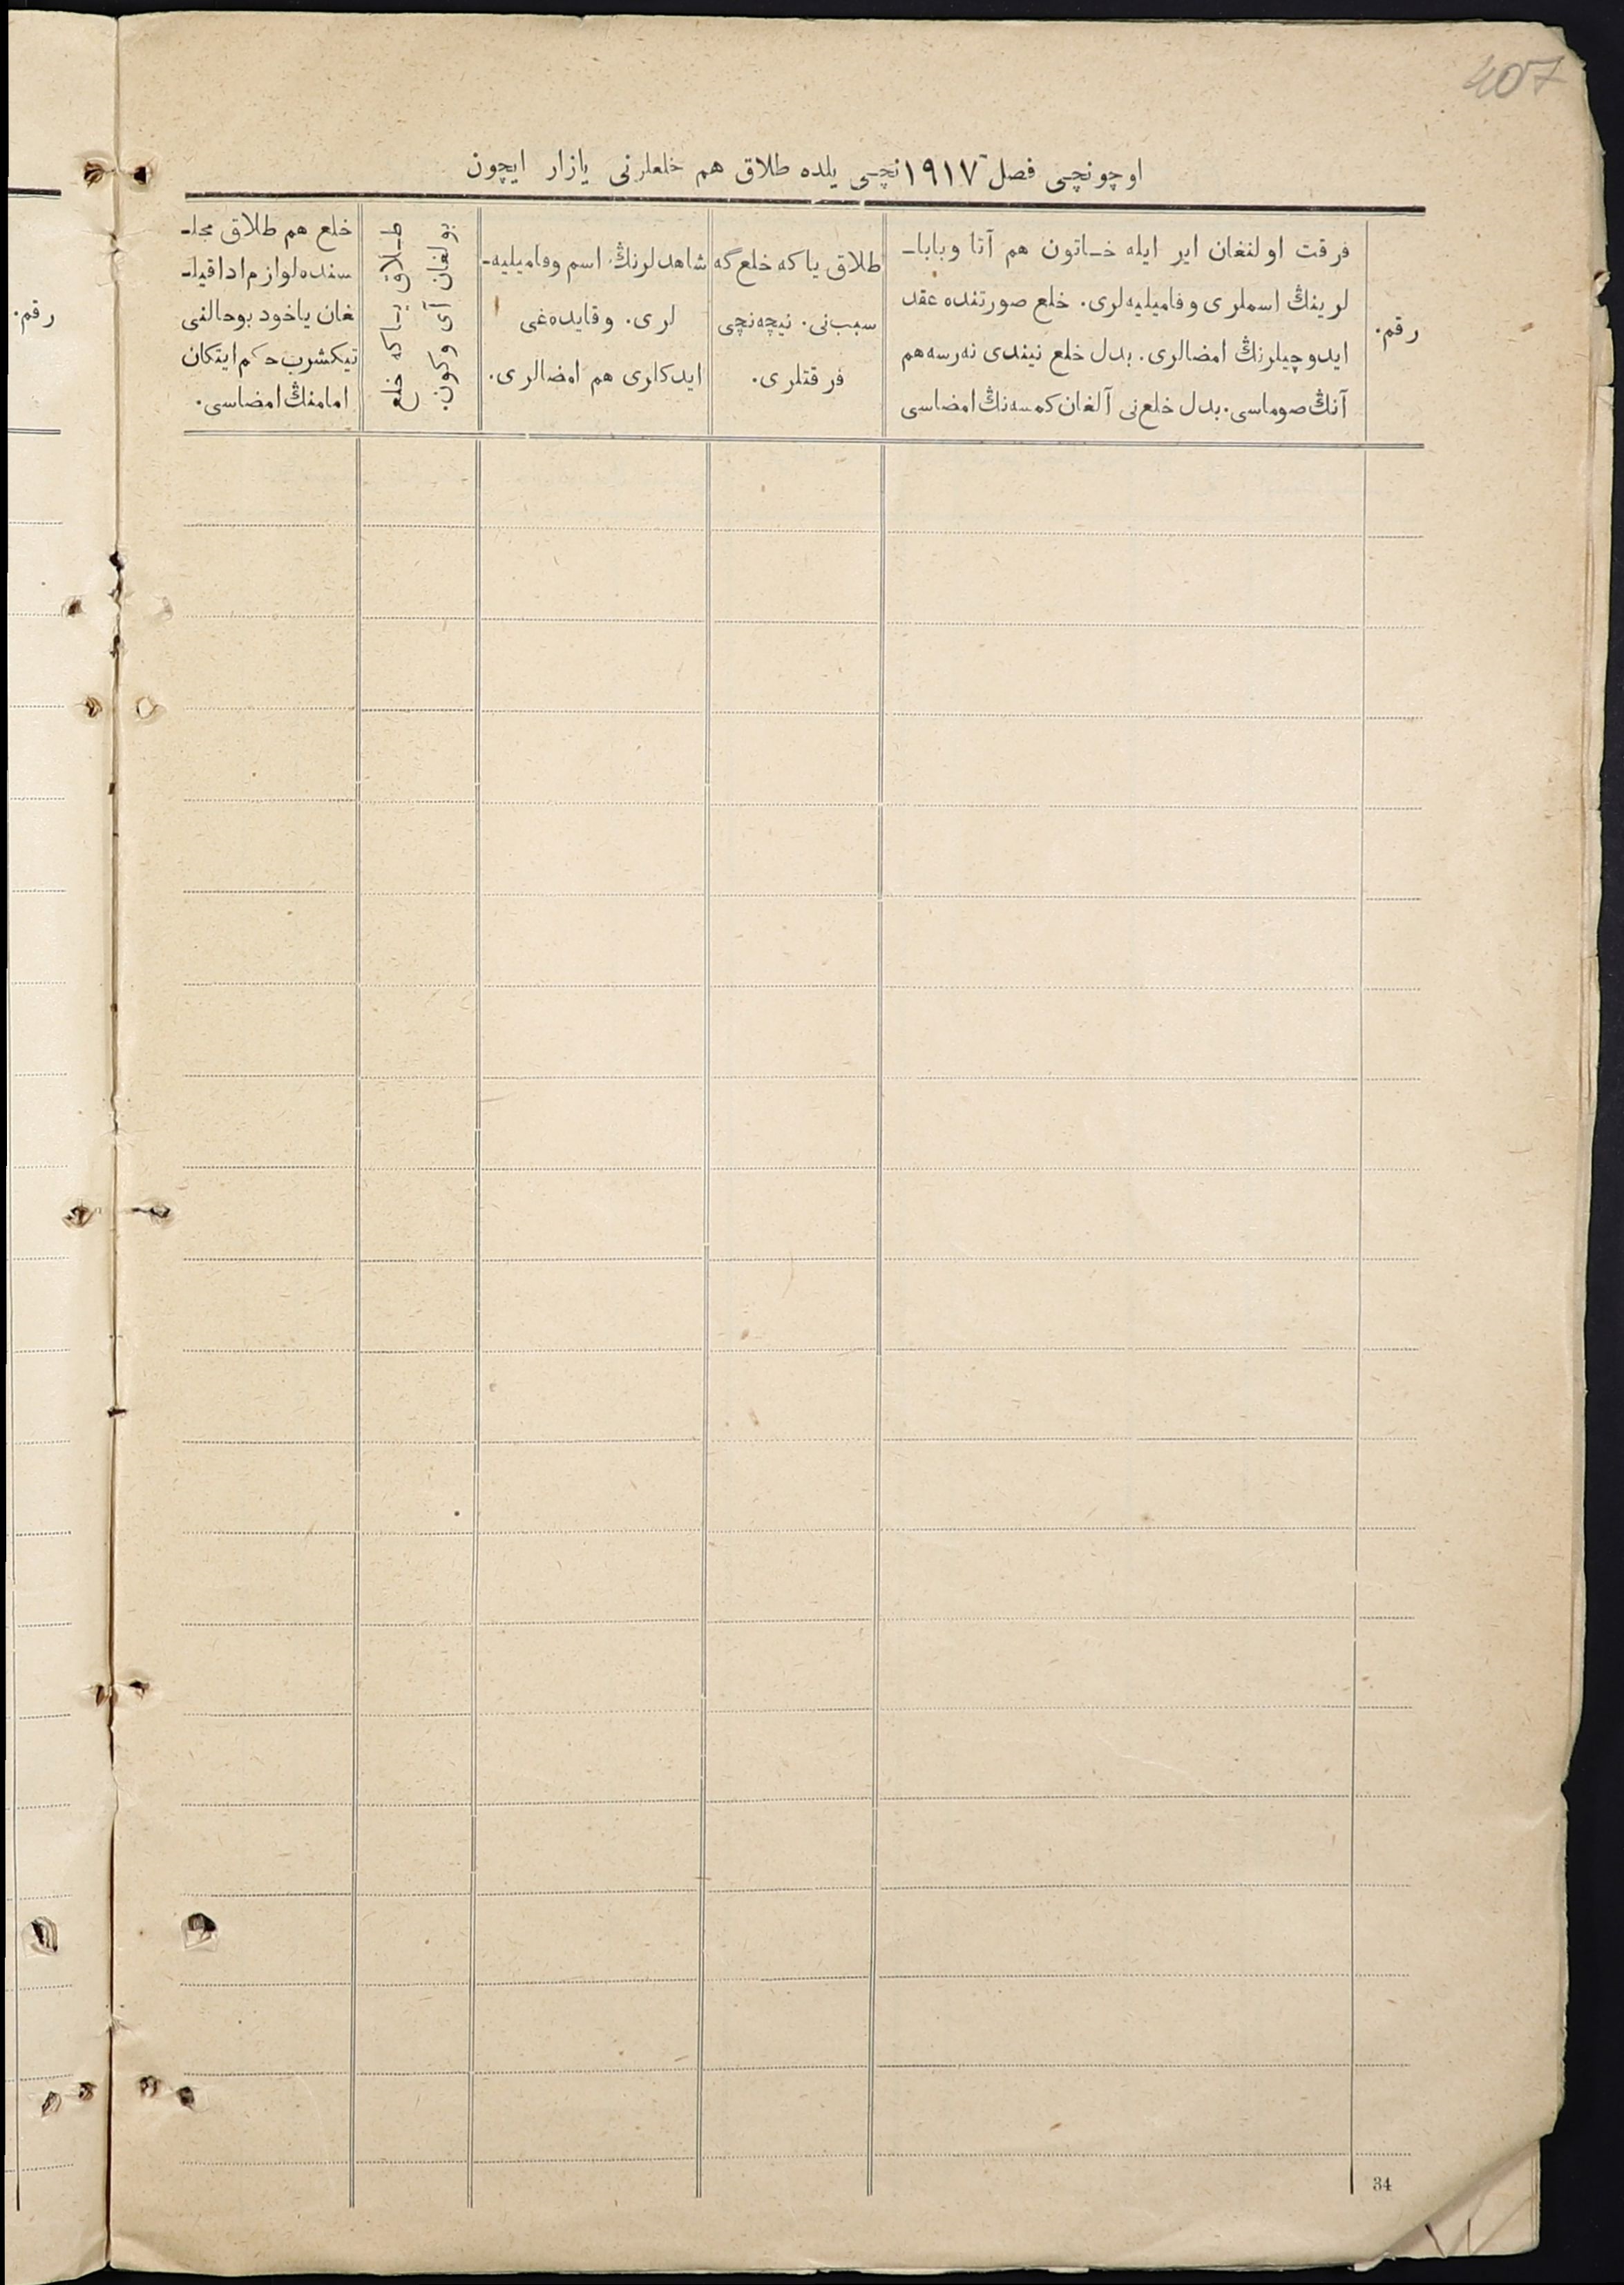 407
اوچونچی فصل ١٩١٧نچی يلده طلاق هم خلعلرنی يازار ايچون
رقم.
فرقت اولنغان اير ايله خـاتون هم آتا وباباـ
لرينڭ اسملری وفاميليه‌لری. خلع صورتنده عقد
ايدوچيلرنڭ امضالری. بدل خلع نيندی نه‌رسه هم
آنڭ صوماسی. بدل خلع‌نی آلغان کمسه‌نڭ امضاسی
طلاق ياکه خلع‌گه
سبب‌نی. نيچه‌نچی
فرقتلری.
شاهدلرنڭ اسم وفاميليه‌ـ
لری. وقايده‌غی
ايدکلری هم امضالری.
طـلاق يـاکه خلع
بولغان آی وکون.
خلع هم طلاق مجلـ
سنده لوازم اداقيلـ
غان ياخود بوحالنی
تيکشرب حکم ايتکان
امامنڭ امضاسی.
رقم.
34